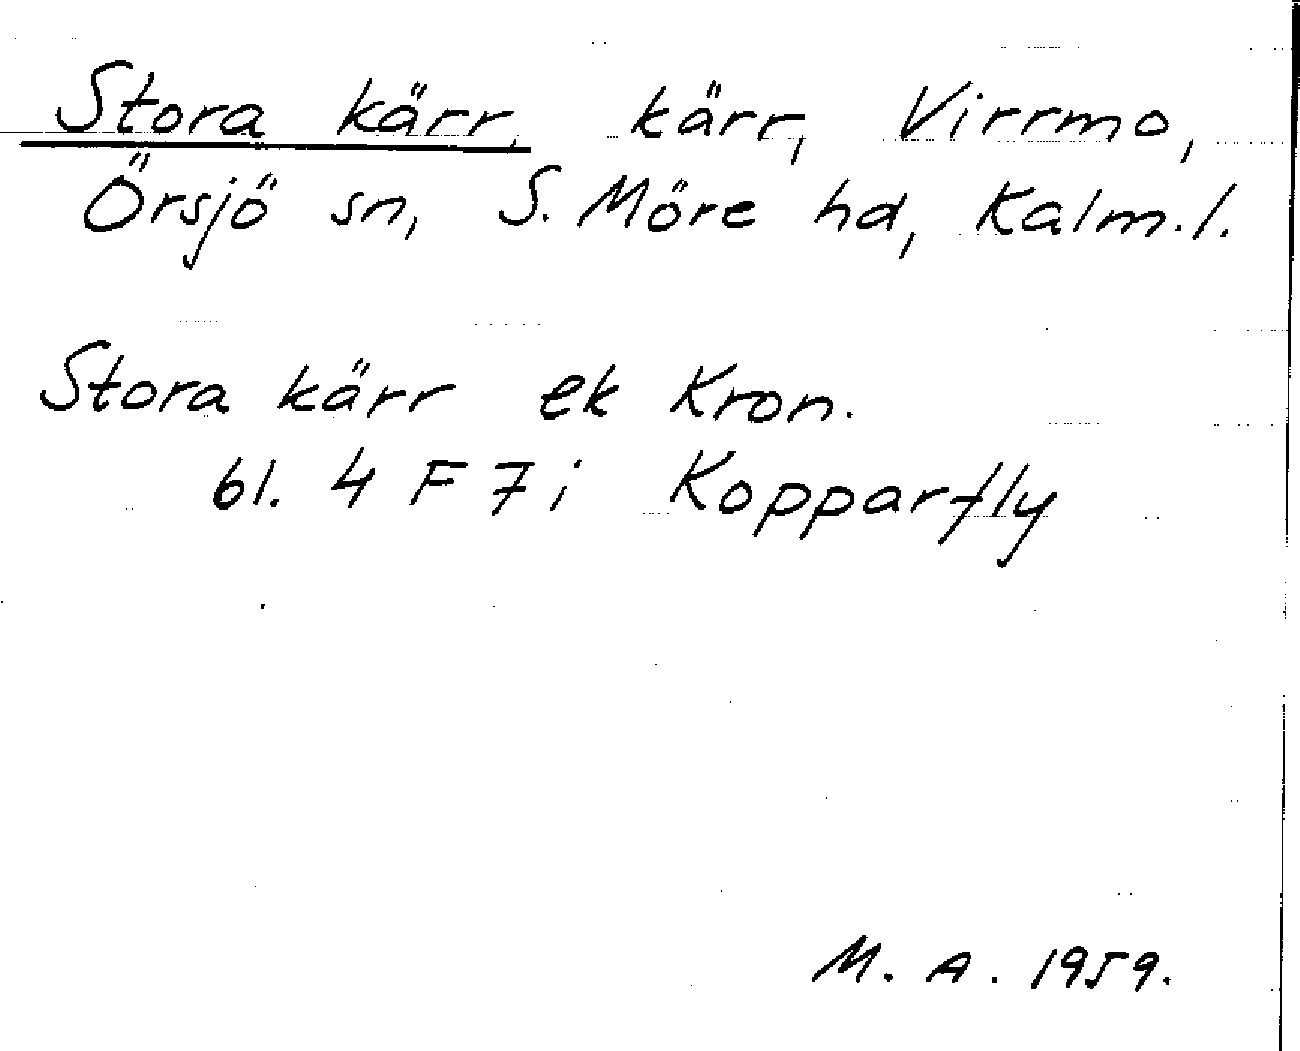 Stora kärr, kärr, Virrmo,
Örsjö sn, S. Möre hd, Kalm.l.
Stora kärr ek Kron.
bl. 4 F 7 i Kopparfly
M. A. 1959.